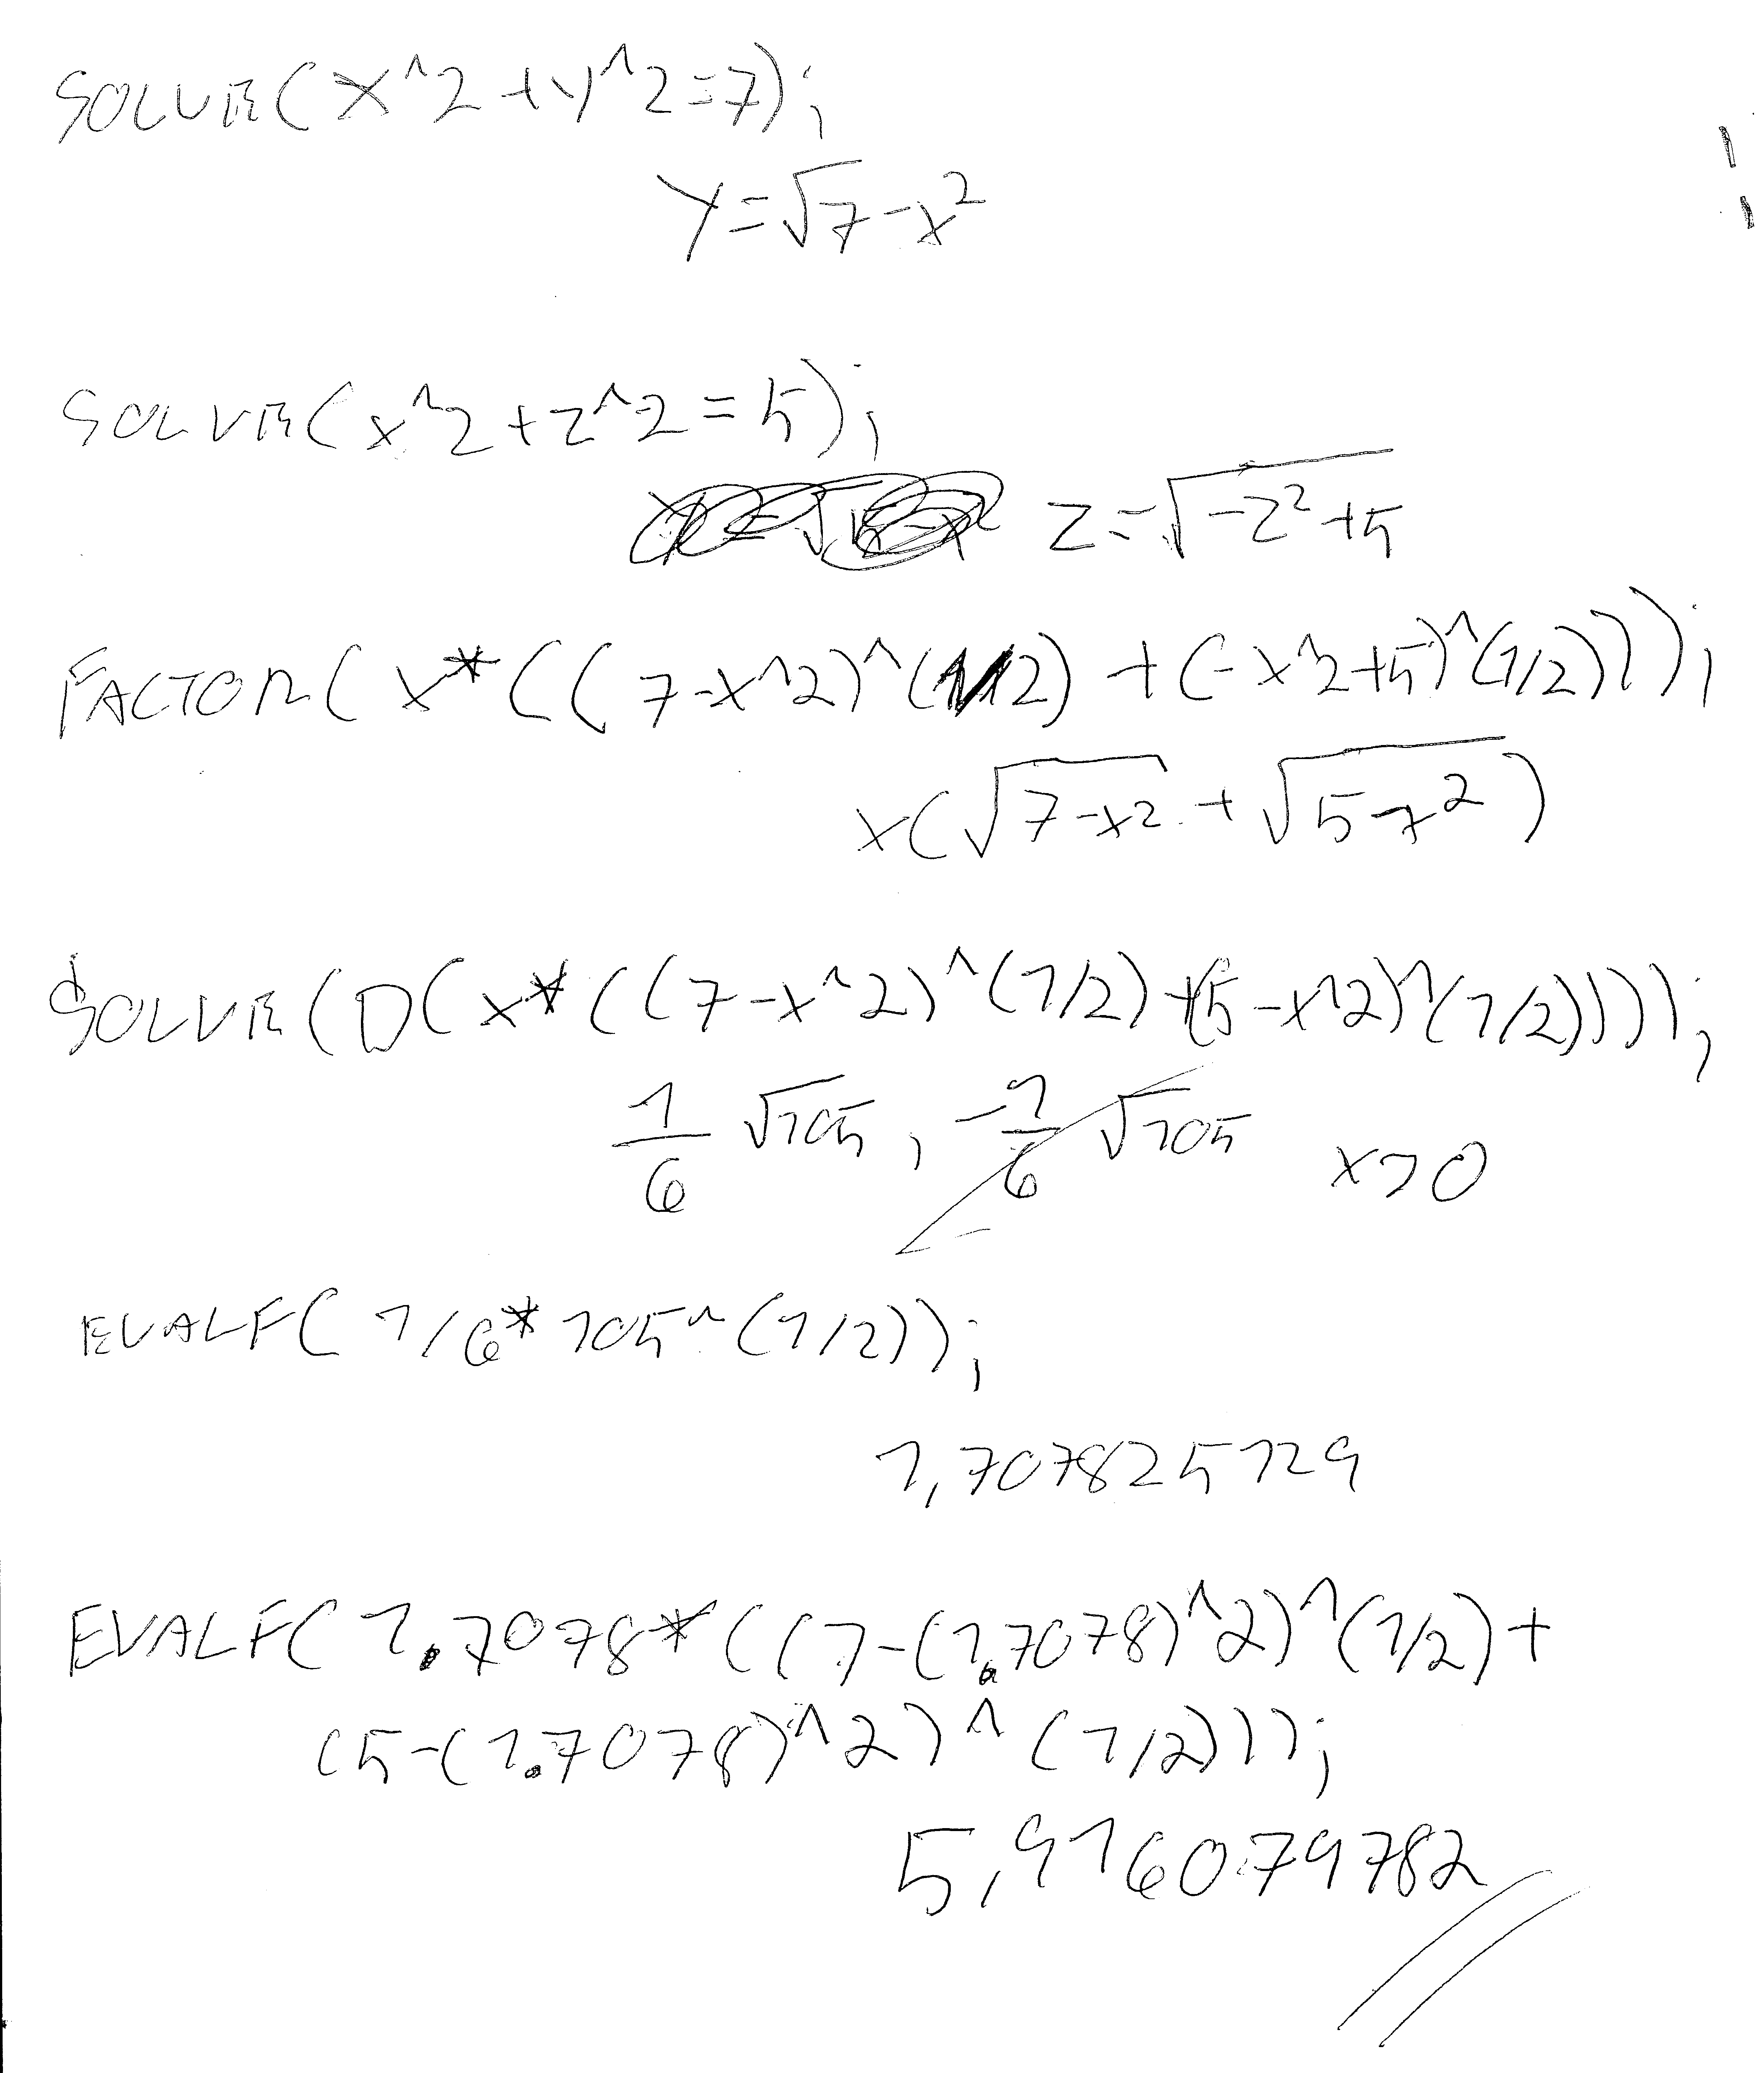 SOLVE(X^2+Y^2=7);
Y=√7-x²
SOLVE(x^2+z^2=5);
z=√-z²+5
FACTOR(x*((7-x^2)^(1/2)+(-x^2+5)^(1/2)));
x(√7-x²+√5-x²)
SOLVE(D(x*((7-x^2)^(1/2)+(5-x^2)^(1/2))));
1/6 √105, -1/6 √105 x>0
EVALF(1/6*105^(1/2));
1,707825129
EVALF(1.7078*((7-(1.7078)^2)^(1/2)+
(5-(1.7078)^2)^(1/2)));
5,916079782